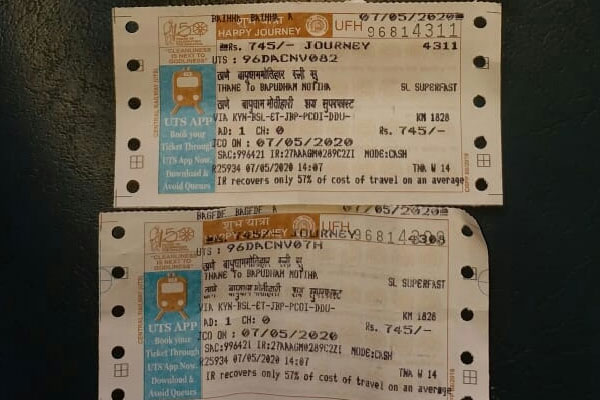 BAIHHA BAIHHA A 07/05/2020
शुभ यात्रा
HAPPY JOURNEY
UFH 96814311
Rs. 745/- JOURNEY 4311
UTS : 96DACNV082
"CLEANLINESS IS NEXT TO GODLINESS"
THANE To BAPUDHAM MOTIHA SL SUPERFAST
VIA KYN-BSL-ET-JBP-PCOI-DDU- KM 1828
AD: 1 CH: 0 Rs. 745/-
JCO ON : 07/05/2020
SAC:996421 IR:27AAAGM0289C2ZI MODE:CASH
R25934 07/05/2020 14:07 TNA W 14
IR recovers only 57% of cost of travel on an average
CENTRAL RAILWAY UTS
UTS APP
Book your
Ticket Through
UTS App Now.
Download &
Avoid Queues
BAGFDF BAGFDF A 07/05/2020
शुभ यात्रा
HAPPY JOURNEY
UFH
745/- JOURNEY
UTS : 96DACNV07H
"CLEANLINESS IS NEXT TO GODLINESS"
THANE To BAPUDHAM MOTIHA SL SUPERFAST
VIA KYN-BSL-ET-JBP-PCOI-DDU- KM 1828
AD: 1 CH: 0 Rs. 745/-
JCO ON : 07/05/2020
SAC:996421 IR:27AAAGM0289C2ZI MODE:CASH
R25934 07/05/2020 14:07 TNA W 14
IR recovers only 57% of cost of travel on an average
CENTRAL RAILWAY UTS
UTS APP
Book your
Ticket Through
UTS App Now.
Download &
Avoid Queues